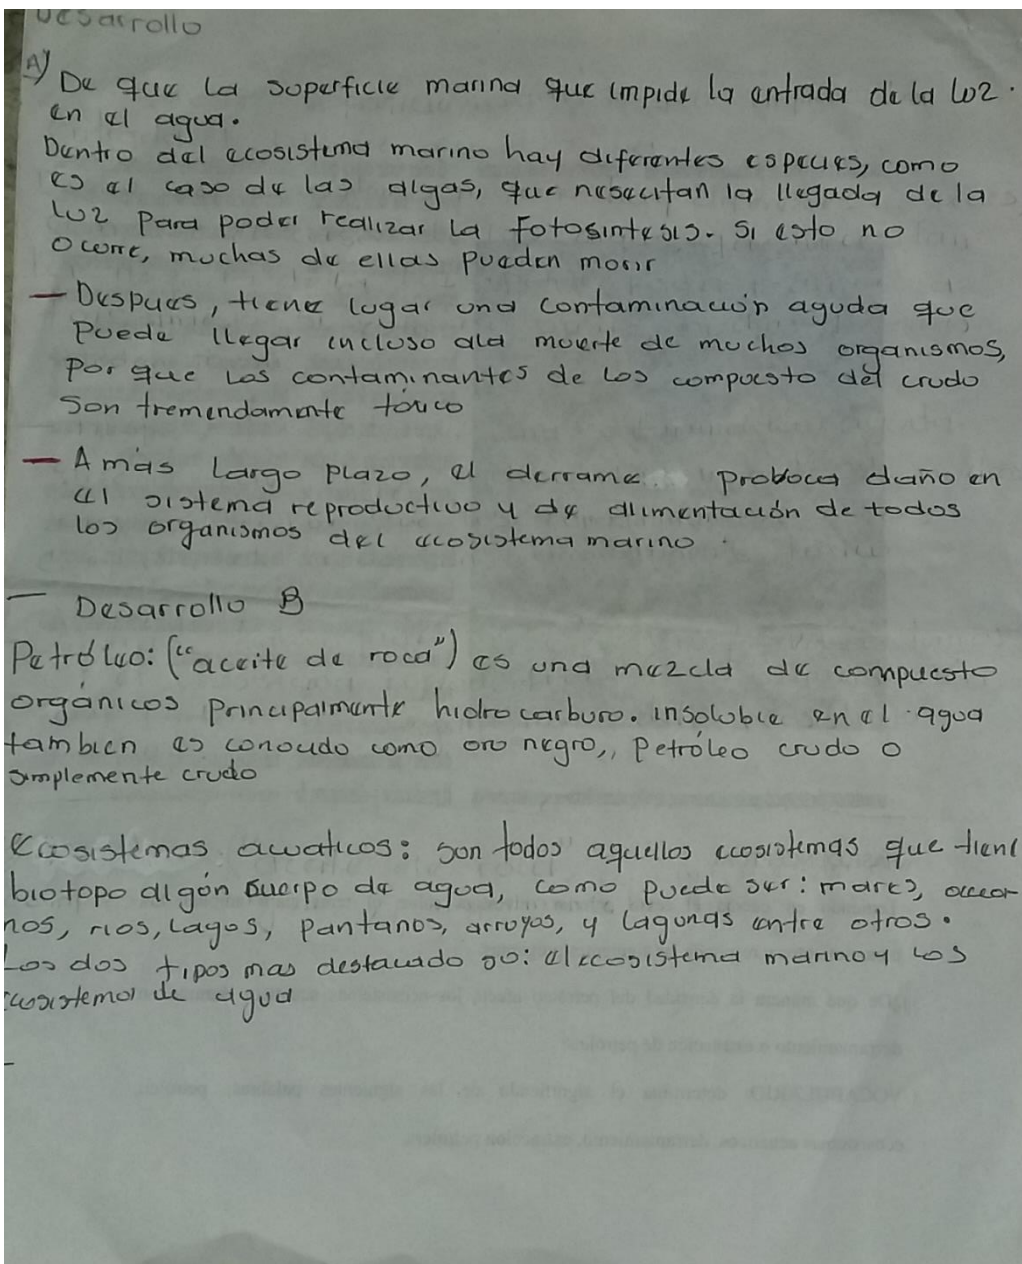 Desarrollo
A) De que la superficie marina que impide la entrada de la luz.
en el agua.
Dentro del ecosistema marino hay diferentes especies, como
es el caso de las algas, que nesecitan la llegada de la
luz para poder realizar la fotosintesis. Si esto no
ocurre, muchas de ellas pueden morir
— Despues, tiene lugar una contaminación aguda que
puede llegar incluso ala muerte de muchos organismos,
por que los contaminantes de los compuesto del crudo
son tremendamente toxico
— A más largo plazo, el derrame proboca daño en
el sistema reproductivo y de alimentación de todos
los organismos del ecosistema marino.
— Desarrollo B
Petróleo: ("aceite de roca") es una mezcla de compuesto
orgánicos principalmente hidrocarburo. insoluble en el agua
tambien es conocido como oro negro, petróleo crudo o
simplemente crudo
Ecosistemas acuaticos: son todos aquellos ecosistemas que tiene
biotopo algún cuerpo de agua, como puede ser: mares,
nos, rios, lagos, pantanos, arroyos, y lagunas entre otros.
Los dos tipos mas destacado so: el ecosistema marino y los
de agua